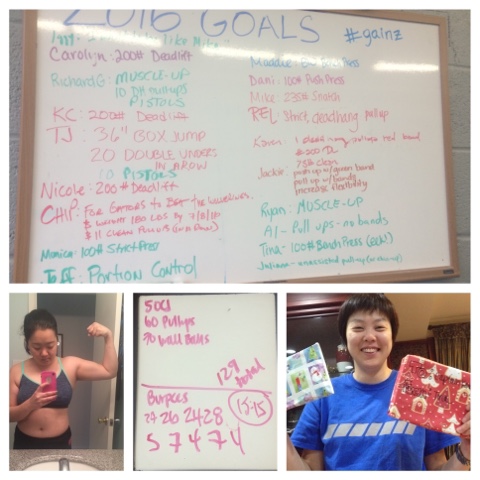 2016 GOALS #gainz
Carolyn: 200# Deadlift
Richard G: MUSCLE-UP
10 DH pullups
PISTOLS
KC: 200# Deadlift
TJ: 36" BOX JUMP
20 DOUBLE UNDERS
IN A ROW
10 PISTOLS
Nicole: 200# Deadlift
CHIP: FOR GATORS TO BEAT THE
Monica: 100# Strict Press
Jeff: Portion Control
Maddie: Press
Dani: 100# Push Press
Mike: 235# Snatch
REL Strict, deadhang pullup
Karen: 1 deadhang pullup red band
200 DL
75# clean
Jackie: push up w/green band
pull up w/bands
incredible flexibility
Ryan: MUSCLE-UP
Al - Pull ups - no bands
Tina - 100# Bench Press (each!)
Juliana - unassisted pull-up
500
60 Pullups
70 Wall Balls
129
total
Burpees
27 26 24 28
15:45
5 7 4 7 4